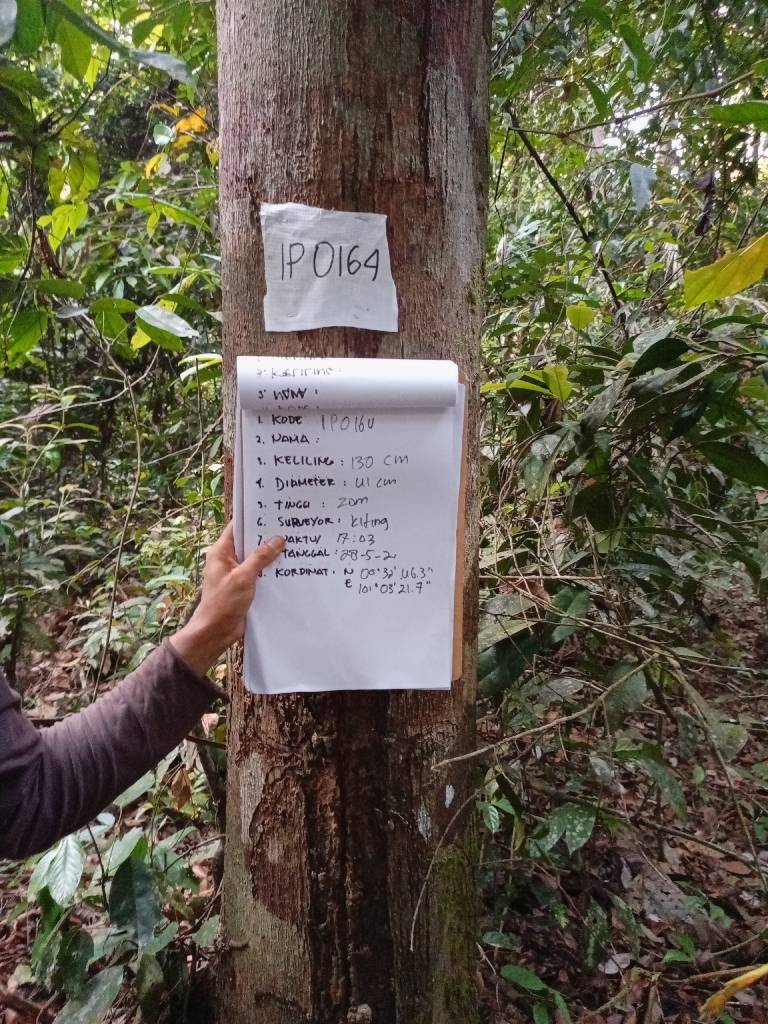 IP0164
3. NAMA :
1. KODE IP0164
2. NAMA :
3. KELILING : 130 cm
4. DIAMETER : 41 cm
5. TINGGI : 20m
6. SURVEYOR : Kiting
7. WAKTU 17:03
TANGGAL : 28-5-2
KORDINAT : N 00°32'46.3"
E 101°03'21.7"